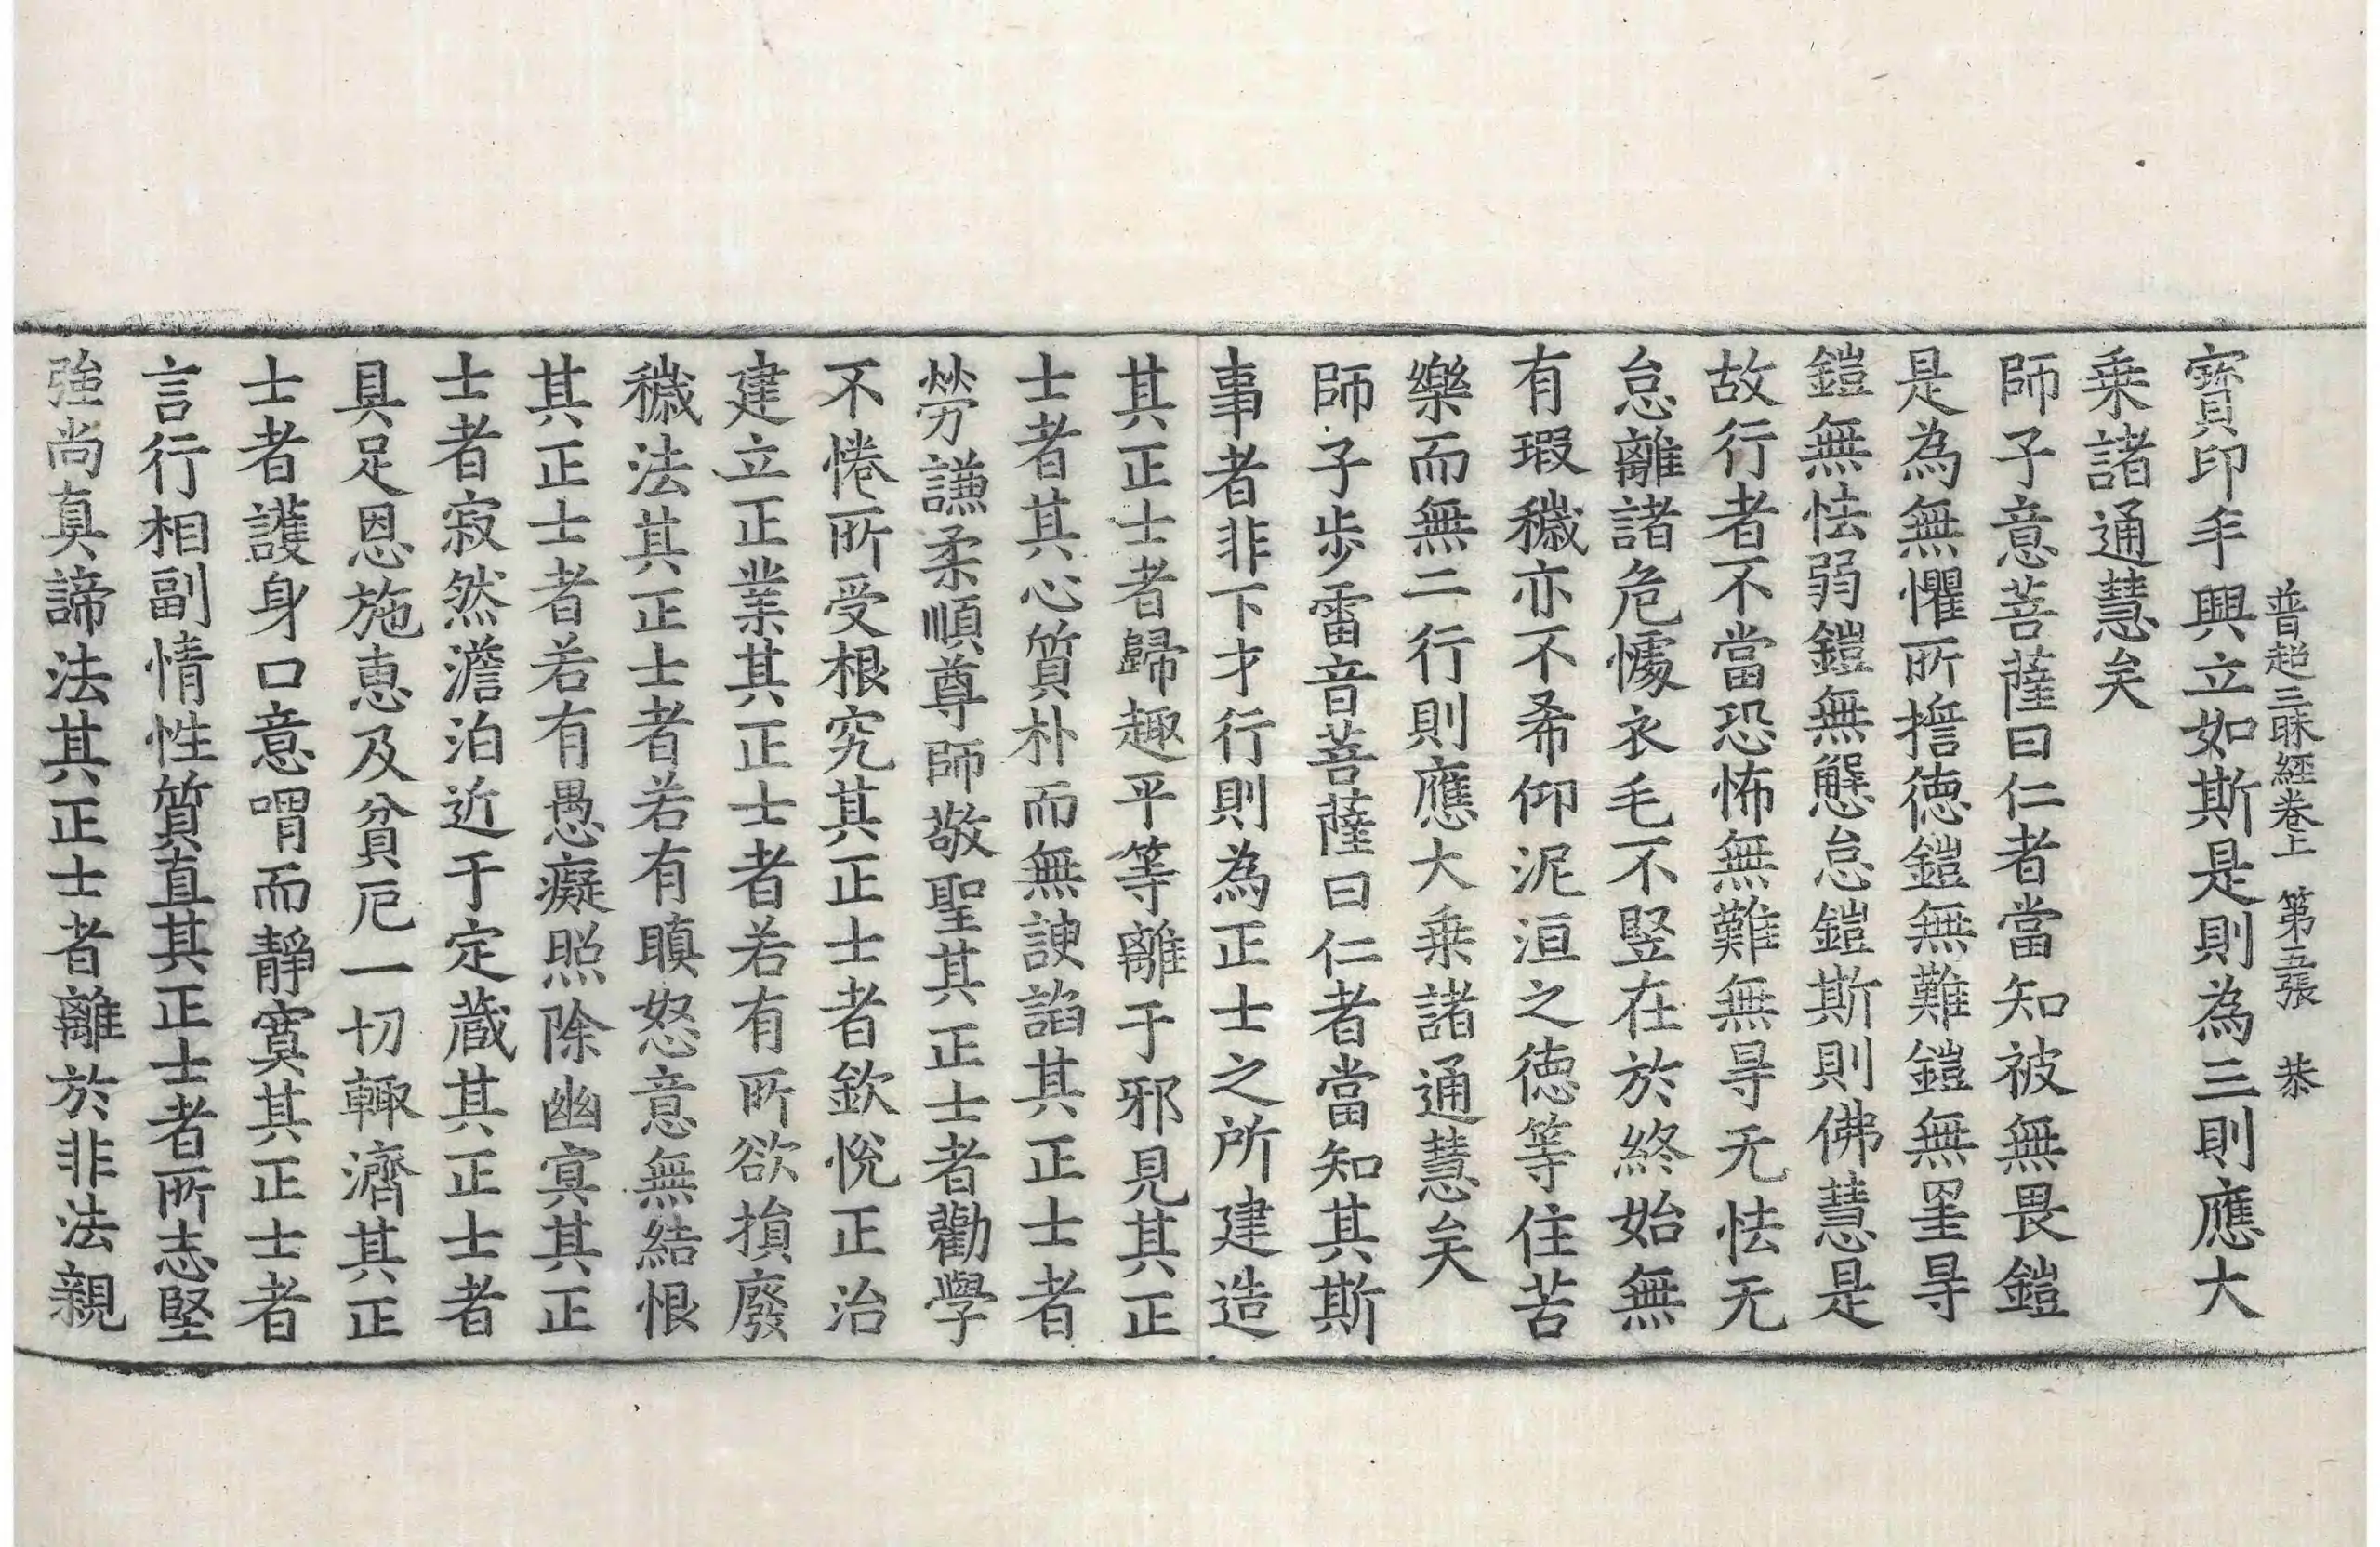 普超三昧經卷上 第五張 㳟
寶印手興立如斯是則為三則應大
乗諸通慧矣
師子意菩薩曰仁者當知被無畏鎧
是為無懼所擔徳鎧無難鎧無罣㝵
鎧無怯弱鎧無懸怠鎧斯則佛慧是
故行者不當恐怖無難無㝵无怯无
怠離諸危懅衣毛不竪在於終始無
有瑕穢亦不希仰泥洹之徳等住苦
樂而無二行則應大乗諸通慧矣
師子步雷音菩薩曰仁者當知其斯
事者非下才行則為正士之所建造
其正士者歸趣平等離于邪見其正
士者其心質朴而無諛諂其正士者
勞謙柔順尊師敬聖其正士者勸學
不惓所受根究其正士者欽悅正治
建立正業其正士者若有所欲損廢
穢法其正士者若有瞋怒意無結恨
其正士者若有愚癡照除幽㝠其正
士者寂然澹泊近于定蔵其正士者
具足恩施恵及貧厄一切輙濟其正
士者護身口意喟而靜寞其正士者
言行相副情性質直其正士者所志堅
強尚真諦法其正士者離於非法親